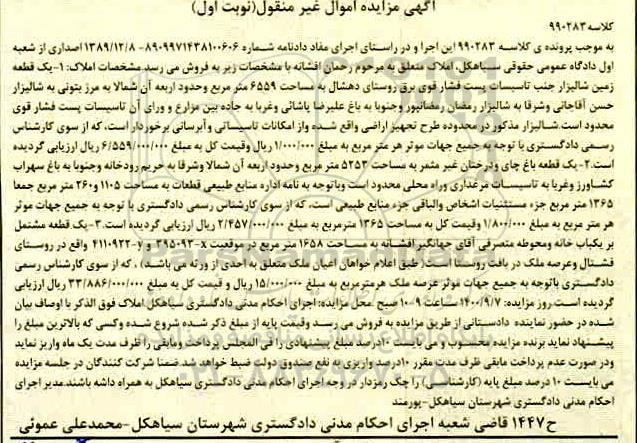 آگهی مزایده اموال غیر منقول(نوبت اول)
کلاسه۹۹۰۲۸۳
به موجب پرونده ی کلاسه ۹۹۰۲۸۳ این اجرا و در راستای اجرای مفاد دادنامه شماره ۸۹۰۹۹۷۱۴۳۸۱۰۰۶۰۶- ۱۳۸۹/۱۲/۸ اصداری از شعبه
اول دادگاه عمومی حقوقی سیاهکل، املاک متعلق به مرحوم رحمان افشانه با مشخصات زیر به فروش می رسد مشخصات املاک: ۱-یک قطعه
زمین شالیزار جنب تاسیسات پست فشار قوی برق روستای دهشال به مساحت ۶۵۵۹ متر مربع وحدود اربعه آن شمالا به مرز بتونی به شالیزار
حسن آقاجانی وشرقا به شالیزار رمضان رمضانپور وجنوبا به باغ علیرضا پاشائی وغربا به جاده بین مزارع و ورای آن تاسیسات پست فشار قوی
محدود است.شالیزار مذکور در محدوده طرح تجهیز اراضی واقع شده واز امکانات تاسیساتی وآبرسانی برخوردار است، که از سوی کارشناس
رسمی دادگستری با توجه به جمیع جهات موثر هر متر مربع به مبلغ ۱/۰۰۰/۰۰۰ ریال وقیمت کل به مبلغ ۶/۵۵۹/۰۰۰/۰۰۰ ریال ارزیابی گردیده
است.۲-یک قطعه باغ چای ودرختان غیر مثمر به مساحت ۵۲۵۳ متر مربع وحدود اربعه آن شمالا وشرقا به حریم رودخانه وجنوبا به باغ سهراب
کشاورز وغربا به تاسیسات مرغداری وراه محلی محدود است وباتوجه به نامه اداره منابع طبیعی قطعات به مساحت ۱۱۰۵ و۲۶۰ متر مربع جمعا
۱۳۶۵ متر مربع جزء مستثنیات اشخاص والباقی جزء منابع طبیعی است، که از سوی کارشناس رسمی دادگستری با توجه به جمیع جهات موثر
هر متر مربع به مبلغ ۱/۸۰۰/۰۰۰ وقیمت کل به مساحت ۱۳۶۵ مترمربع به مبلغ ۲/۴۵۷/۰۰۰/۰۰۰ ریال ارزیابی گردیده است.۳-یک قطعه مشتمل
بر یکباب خانه ومحوطه متصرفی آقای جهانگیر افشانه به مساحت ۱۶۵۸ متر مربع در موقعیت x-۳۹۵۰۹۳ و y-۴۱۱۰۹۲۲ واقع در روستای
فشتال وعرصه ملک در بافت روستا است( طبق اعلام خواهان اعیان ملک متعلق به احدی از ورثه می باشد) ، که از سوی کارشناس رسمی
دادگستری باتوجه به جمیع جهات موثر عرصه ملک هرمترمربع به مبلغ ۱۵/۰۰۰/۰۰۰ ریال و قیمت کل به مبلغ ۳۳/۸۸۶/۰۰۰/۰۰۰ ریال ارزیابی
گردیده است روز مزایده: ۱۴۰۰/۹/۷ ساعت ۹-۱۰ صبح محل مزایده: اجرای احکام مدنی دادگستری سیاهکل املاک فوق الذکر با اوصاف بیان
شده در حضور نماینده دادستانی از طریق مزایده به فروش می رسد وقیمت پایه از مبلغ ذکر شده شروع شده وکسی که بالاترین مبلغ را
پیشنهاد نماید برنده مزایده محسوب و می بایست ۱۰درصد مبلغ پیشنهادی را فی المجلس پرداخت ومابقی را ظرف مدت یک ماه واریز نماید
ودر صورت عدم پرداخت مابقی ظرف مدت مقرر ۱۰درصد واریزی به نفع صندوق دولت ضبط خواهد شد.ضمنا شرکت کنندگان در جلسه مزایده
می بایست ۱۰ درصد مبلغ پایه (کارشناسی) را چک رمزدار در وجه اجرای احکام مدنی دادگستری سیاهکل به همراه داشه باشند.مدیر اجرای
احکام مدنی دادگستری سیاهکل-پورمند
ح۱۴۴۷ قاضی شعبه اجرای احکام مدنی دادگستری شهرستان سیاهکل-محمدعلی عموئی